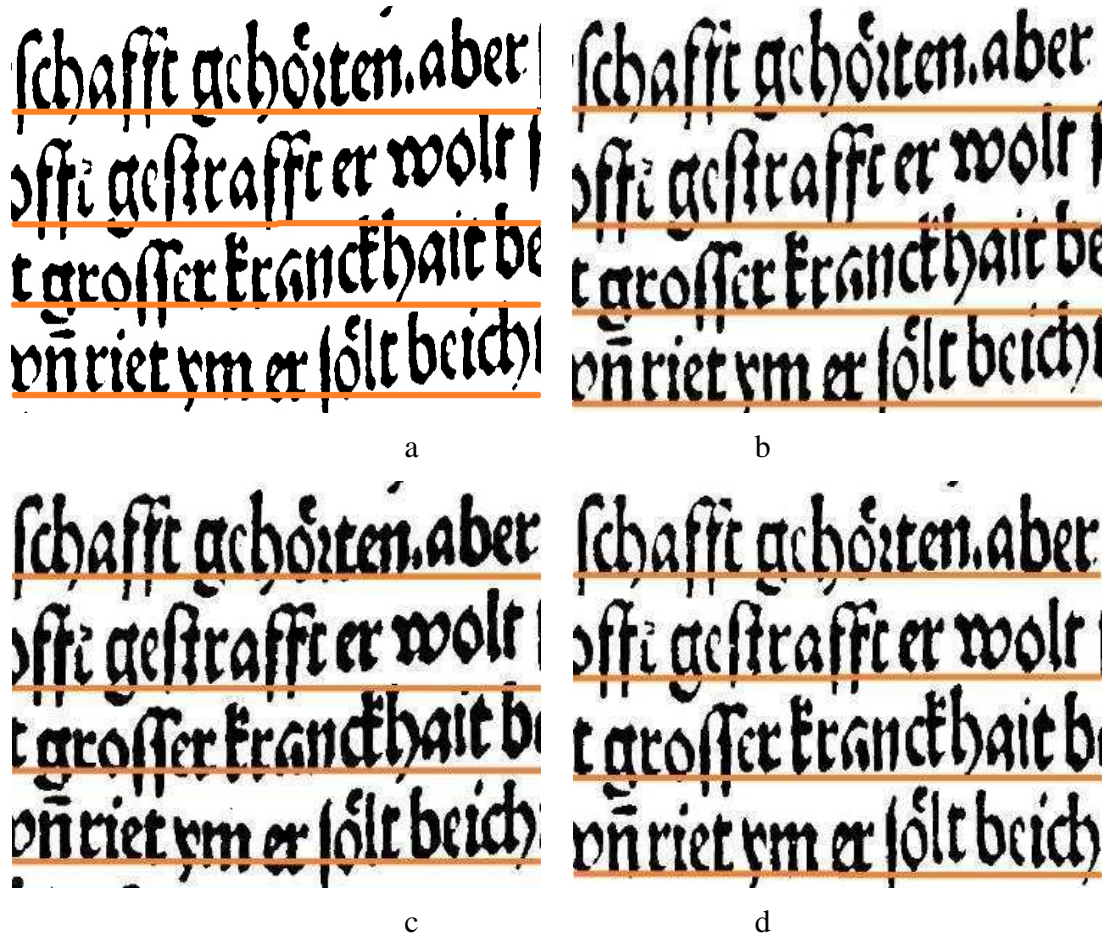 ſchafft gehoͤꝛten.aber
offi geſtrafft er wolt
t groſſer kranckhait be
vn̄ riet ym er ſoͤlt beich
a
ſchafft gehoͤꝛten.aber
offi geſtrafft er wolt
t groſſer kranckhait be
vn̄ riet ym er ſoͤlt beich
b
ſchafft gehoͤꝛten.aber
offi geſtrafft er wolt
t groſſer kranckhait be
vn̄ riet ym er ſoͤlt beich
c
ſchafft gehoͤꝛten.aber
offi geſtrafft er wolt
t groſſer kranckhait be
vn̄ riet ym er ſoͤlt beich
d